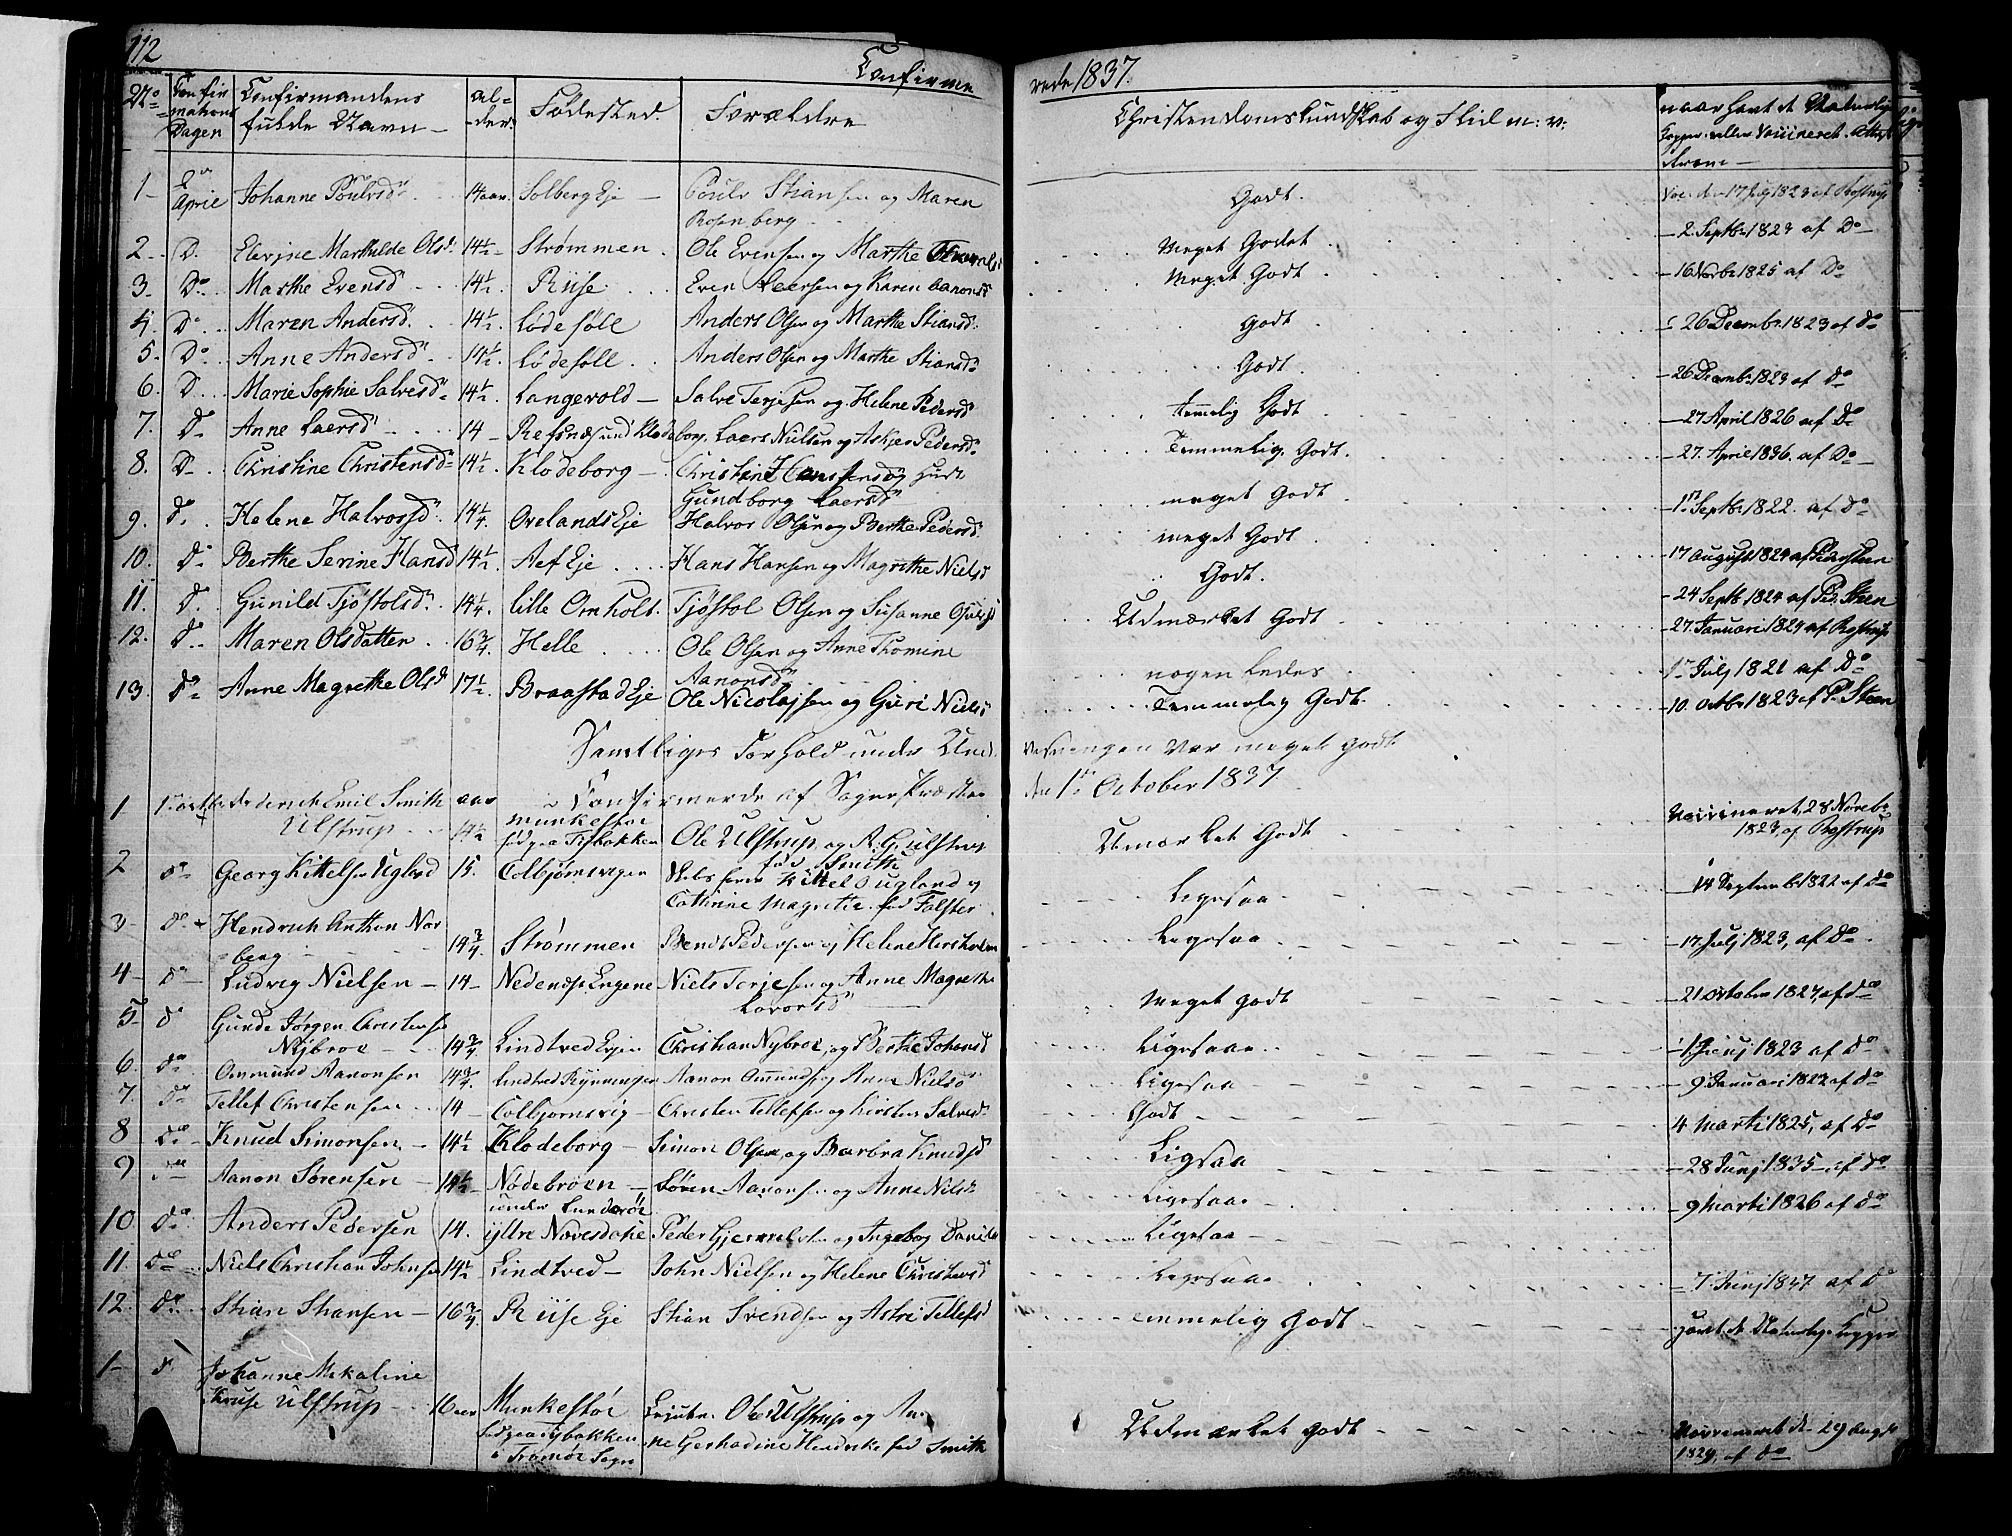 112
Confirme
rede 1837.
No Confirmations Dagen Confirmandens fulde Navn Alder Fødested. Forældre Christendomskundskab og Flid m: v: naar havt de Naturlige Kopper eller Vaccineret
1 April Johanne Poulsd 14 aar Solberg Eje Poulv Stiansen og Maren Rosenberg Godt. Vac. den 17 Julj 1823 af Rostrup
2 Do Elevine Marthilde Olsd 14½ Strømmen Ole Evensen og Marthe Meget Godt 2 Septbr 1823 af Do
3 Do Marthe Evensd 14½ Riise Even Leersen og Karen Aanonsd Meget Godt 16 Novbr 1825 af Do
4 Do Maren Andersd 14½ Lødesøll Anders Olsen og Marthe Stiansd Godt 26 Decembr 1823 af Do
5 Do Anne Andersd 14½ Lødesøll Anders Olsen og Marthe Stiansd Godt 26 Decembr 1823 af Do
6 Do Marie Sophie Salvesd 14½ Langevold Salve Terjesen og Helene Pedersd temelig Godt 27 April 1826 af Do
7. Do Anne Laersd 14 Refsnæs und Klodeborg. Laers Nielsen og Askjer Pedersd Temmelig Godt. 27. April 1836. af Do
8. Do Christine Christensd 14½ Klodeborg Christen Hansen og Hust Gundborg Laersd meget Godt 1 Septbr 1822 af Do
9. Do Helene Halvorsd 14¼ Ovelands Eje Halvor Olsen og Berthe Pedersd meget Godt 17 August 1824 af P. Steen
10. Do Berthe Serine Hansd 14½ Aef Eje Hans Hansen og Magrethe Nielsd Godt. 24 Septbr 1824 af P. Steen
11. Do Gunild Tjøstolsd 14¼ lille Omholt Tjøstol Olsen og Susanne Udmærket Godt 27. Januari 1824 af Rostrup
12. Do Maren Olsdatter 16¾ Helle Ole Olsen og Anne Thomine Aanonsd nogenledes 1 Julj 1821 af Do
13. Do Anne Magrethe Olsd 17½ Braastad Eje Ole Nicolajsen og Guri Nielsd Temmelig Godt. 10. Octbr 1823 af P. Steen
Samtliges Forhold under Underviisningen var meget godt
Confirmerede af Sognepræsten den 1ste October 1837
1 1 octbr Frederich Emil Smith Ulstrup aar 14½ Munkestøe født paa Tisbakken Ole Ulstrup og A. G. Ulstrup fød Smith Udmærket Godt Vaccineret 28 Novebr 1823 af Rostrup
2 Do Georg Kittelsen Ugland 15. Colbjørnsvigen Kittel Ugland og Cathrine Magrethe fød Falster Ligesaa 14 Septembr 1822 af Do
3 Do Hendrich Anthon Norberg 14¾ Strømmen Bendt Pedersen og Helene Ligesaa 17. Julj 1823, af Do
4 Do Ludvig Nielsen 14 Nedenæs Engene Niels Terjesen og Anne Magrethe Lavorsd Meget godt 21 October 1827, af do
5 Do Gunde Jørgen Christensen Nybroe 14¾ Lindtved Ejen Christian Nybroe, og Berthe Johansd Ligesaa 1823 af Do
6. Do Ommund Aanonsen 14¾ Lindtved Rynningen Aanon Omunds og Anne Nielsd Ligesaa 9 Januari 1823 af Do
7. Do Tellef Christensen 14 Colbjørnsvig Christen Tellefsen og Kirsten Salvesd Godt 4 Marti 1825, af Do
8 Do Knud Simonsen 14½ Klodeborg Simon Olsen og Barbra Knudsd Ligsaa 28 Junj 1835 af Do
9 Do Aanon Sørensen 14½ Nødebroen under Lunderöe Søren Aanonsen og Anne Nilsd Ligesaa 9 Marti 1826 af Do
10 Do Anders Pedersen 14. yttre Novesdahl Peder og Ingeborg Danielsd Ligesaa
11. Do Niels Christian Johnsen 14½ Lindtved John Nielsen og Helene Christensd Ligesaa 7 Junj 1837 af Do
12. Do Stian Stiansen 16¾ Riise Eje Stian Svendsen og Astri Tellefsd temmelig Godt havt de Naturlige Kopper
1 Do Johanne Mikaline Kruse Ulstrup 16 aar Munkestøe født paa Tybakken i Tromøe Sogn Lieutn. Ole Ulstrup og Anne Gerhadine Hendrike fød Smith Udmærket godt Vaccineret d 29 Augst 1824, af Do